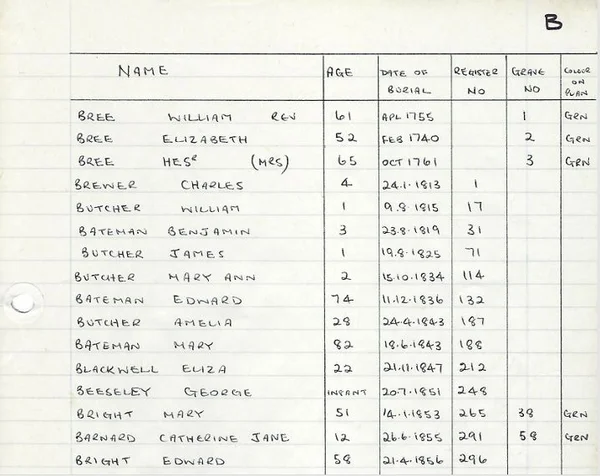 B
NAME AGE DATE OF BURIAL REGISTER NO GRAVE NO COLOUR ON PLAN
BREE WILLIAM REV 61 APL 1755 1 GRN
BREE ELIZABETH 52 FEB 1740 2 GRN
BREE HESR (MRS) 65 OCT 1761 3 GRN
BREWER CHARLES 4 24.1.1813 1
BUTCHER WILLIAM 1 9.8.1815 17
BATEMAN BENJAMIN 3 23.8.1819 31
BUTCHER JAMES 1 19.8.1825 71
BUTCHER MARY ANN 2 15.10.1834 114
BATEMAN EDWARD 74 11.12.1836 132
BUTCHER AMELIA 28 24.4.1843 187
BATEMAN MARY 82 18.6.1843 188
BLACKWELL ELIZA 22 21.11.1847 212
BEESELEY GEORGE INFANT 20.7.1851 248
BRIGHT MARY 51 14.1.1853 265 38 GRN
BARNARD CATHERINE JANE 12 26.6.1855 291 58 GRN
BRIGHT EDWARD 58 21.4.1856 296